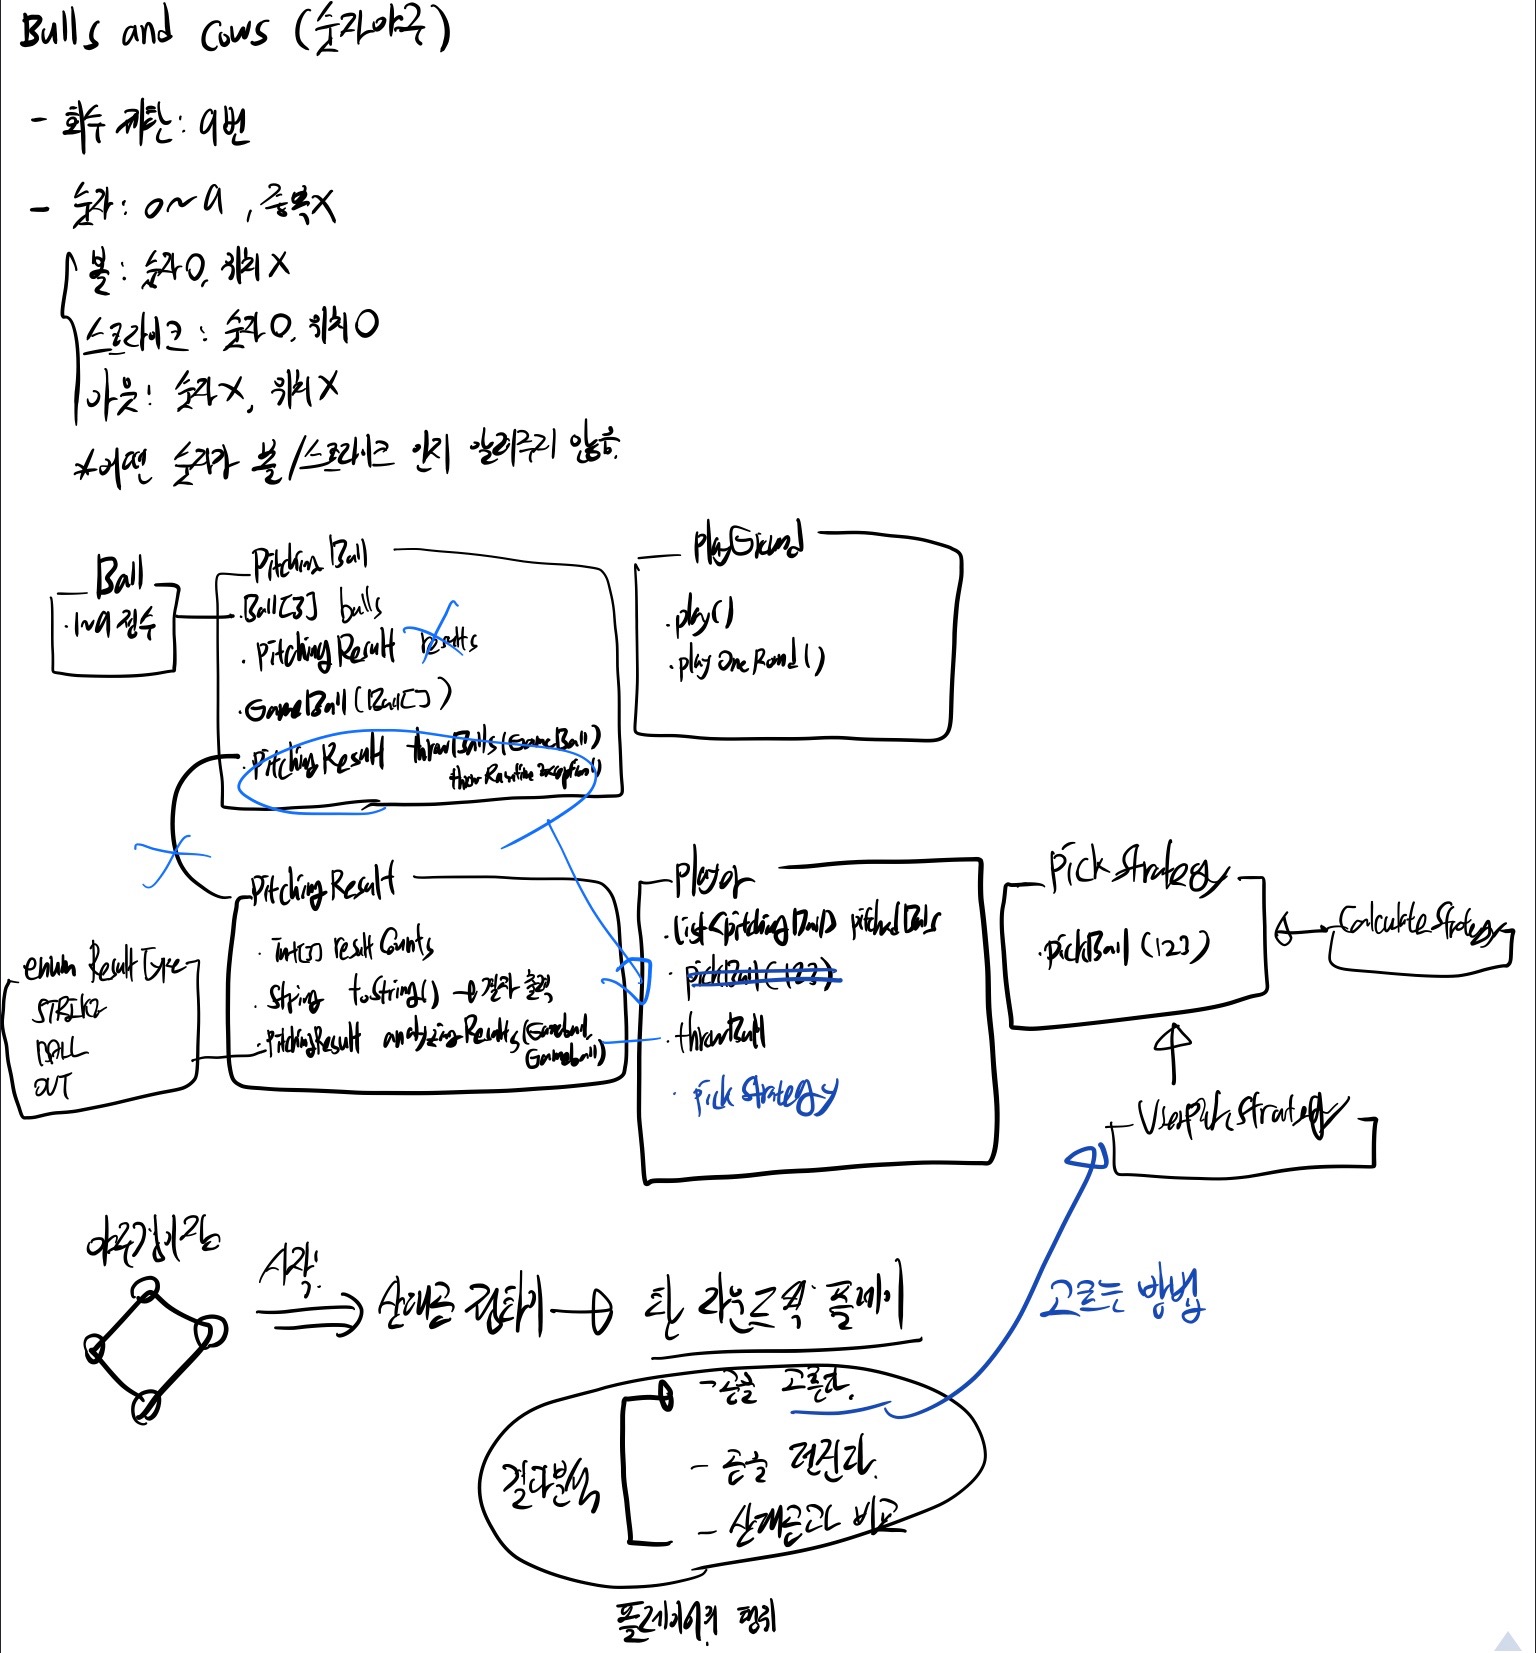 Bulls and Cows (숫자야구)
- 회수 제한: 9번
- 숫자: 0~9, 중복X
볼: 숫자O, 위치X
스트라이크: 숫자O, 위치O
아웃: 숫자X, 위치X
*어떤 숫자가 볼/스트라이크 인지 알려주지 않음.
Ball
· 1~9 정수
Pitching Ball
· Ball[3] balls
· PitchingResult results
· GameBall(Ball[])
· PitchingResult throwBalls(GameBall)
throw RuntimeException()
PlayGround
· play()
· playOneRound()
enum ResultType
STRIKE
BALL
OUT
PitchingResult
· Int[] resultCounts
· String toString() → 결과 출력
· PitchingResult analyzingResults(Gameball, Gameball)
Player
· List<pitchingBall> pitchedBalls
· pickBall(123)
· throwBall
· pick Strategy
pick Strategy
· pickBall(123)
CalculateStrategy
UserPickStrategy
야구경기장
시작!
상대공 픽하기
한 라운드씩 플레이
고르는 방법
- 공을 고른다.
- 공을 던진다.
- 상대공과 비교
결과분석
플레이어의 행위